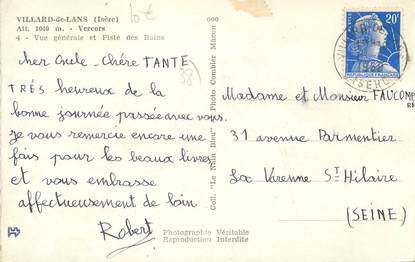 VILLARD-de-LANS (Isère)
Alt. 1040 m. - Vercors
4 - Vue générale et Piste des Bains
10€
38)
cher Oncle - chère TANTE
TRÉS heureux de la
bonne journée passée avec vous.
je vous remercie encore une
fois pour les beaux livres
et vous embrasse
affectueusement de loin
Robert
Photographie Véritable
Reproduction Interdite
Coll. "Le Nain Bleu" Photo Combier Mâcon
20F
Madame et Monsieur FAUCOMP
31 avenue Parmentier
La Varenne St Hilaire
(SEINE)